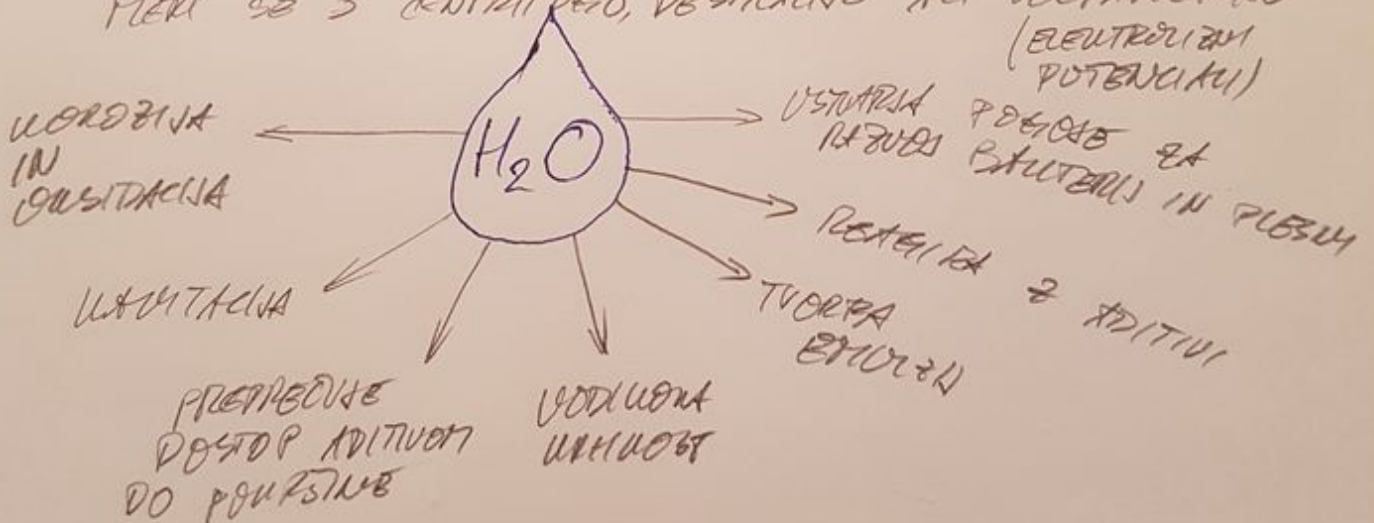 MERI SE S CENTRIFUGO, DESTILACIJO ALI
(ELEKTRIČNI
POTENCIALI)
KOROZIJA
IN
OKSIDACIJA
H₂O
USTVARJA POGOJE ZA
RAZVOJ BAKTERIJ IN PLESNI
REAGIRA Z ADITIVI
TVORBA
EMULZIJ
KAVITACIJA
PREPREČUJE
DOSTOP ADITIVOM
DO POVRŠINE
VODIKOVA
KRHKOST